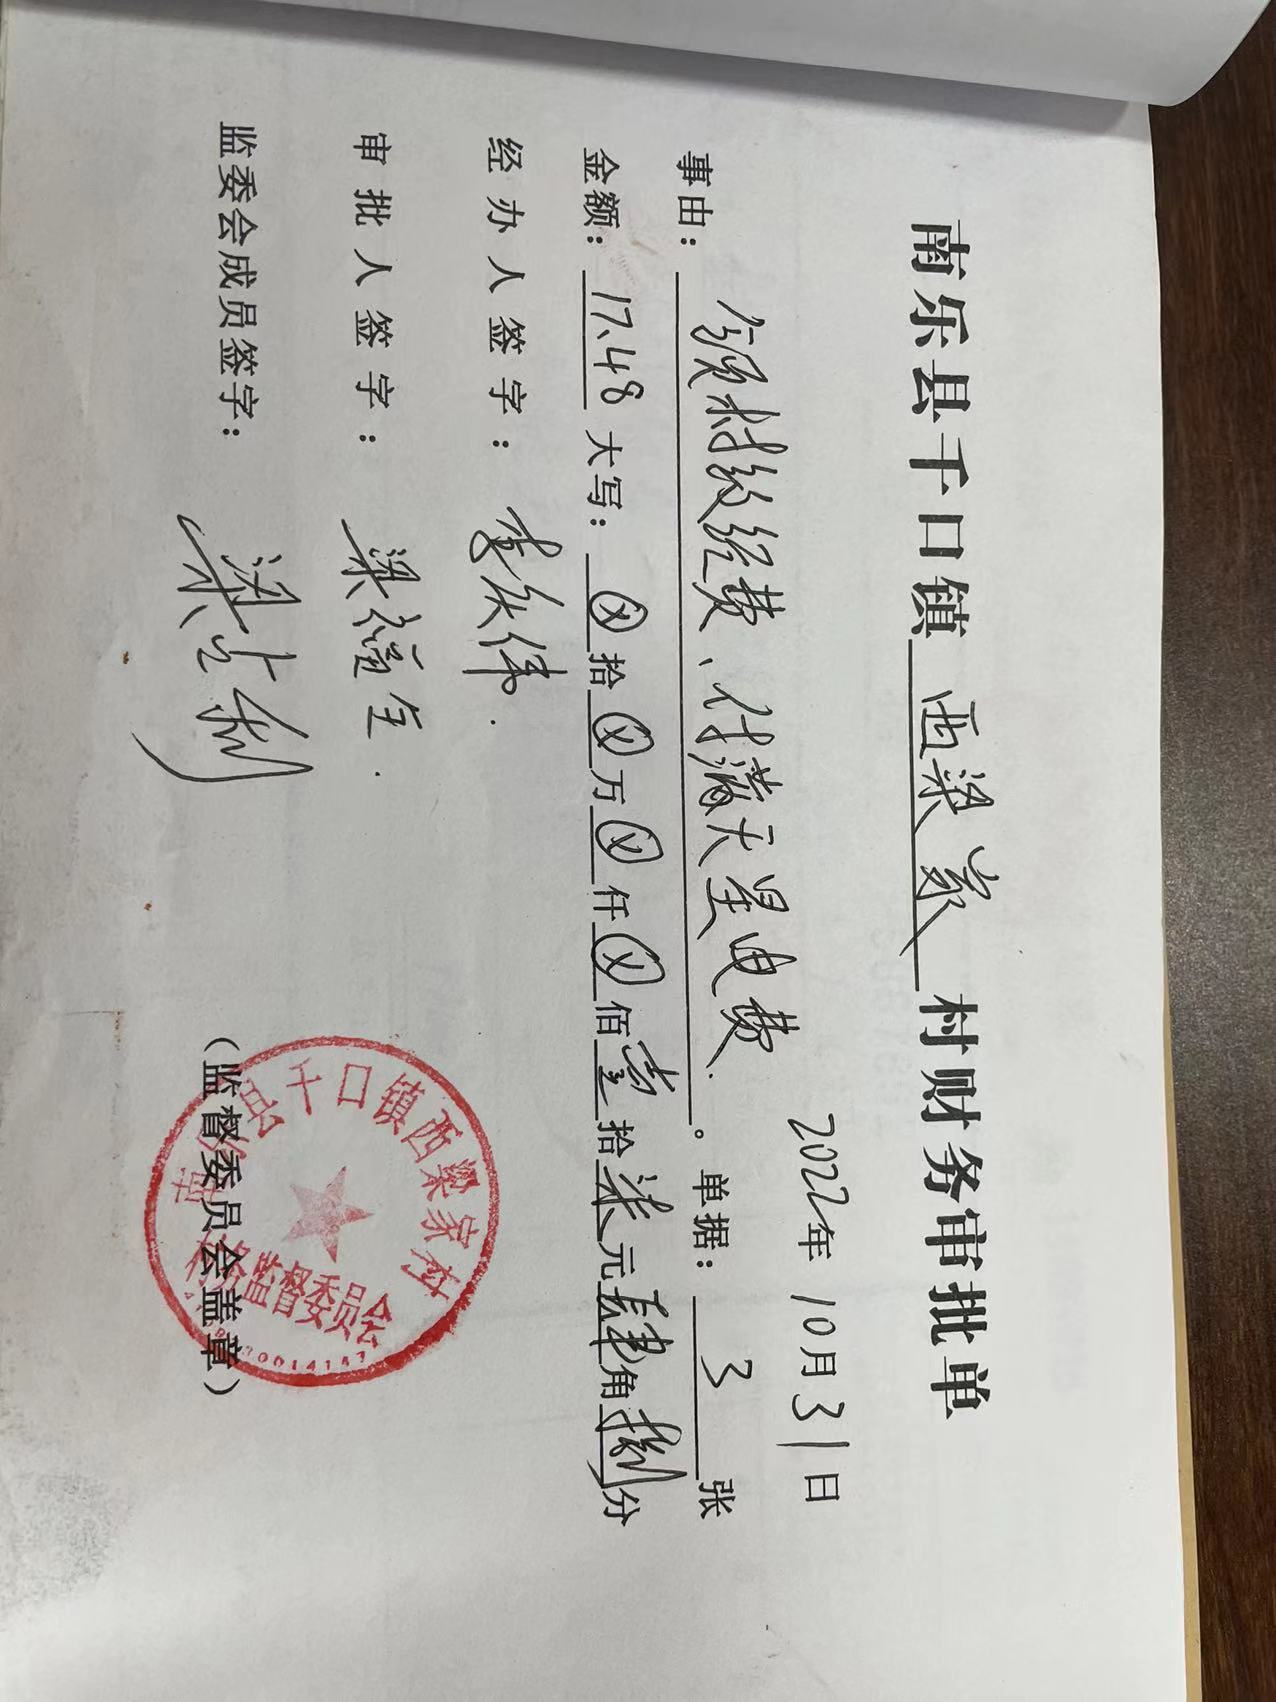 南乐县千口镇西梁家村财务审批单
2022年10月31日
事由：领村级经费、付满天星电费。单据：3张
金额：17.48大写：⊗拾⊗万⊗仟⊗佰壹拾柒元肆角捌分
经办人签字：
审批人签字：梁
监委会成员签字：梁
（监督委员会盖章）
南乐县千口镇西梁家村
村务监督委员会